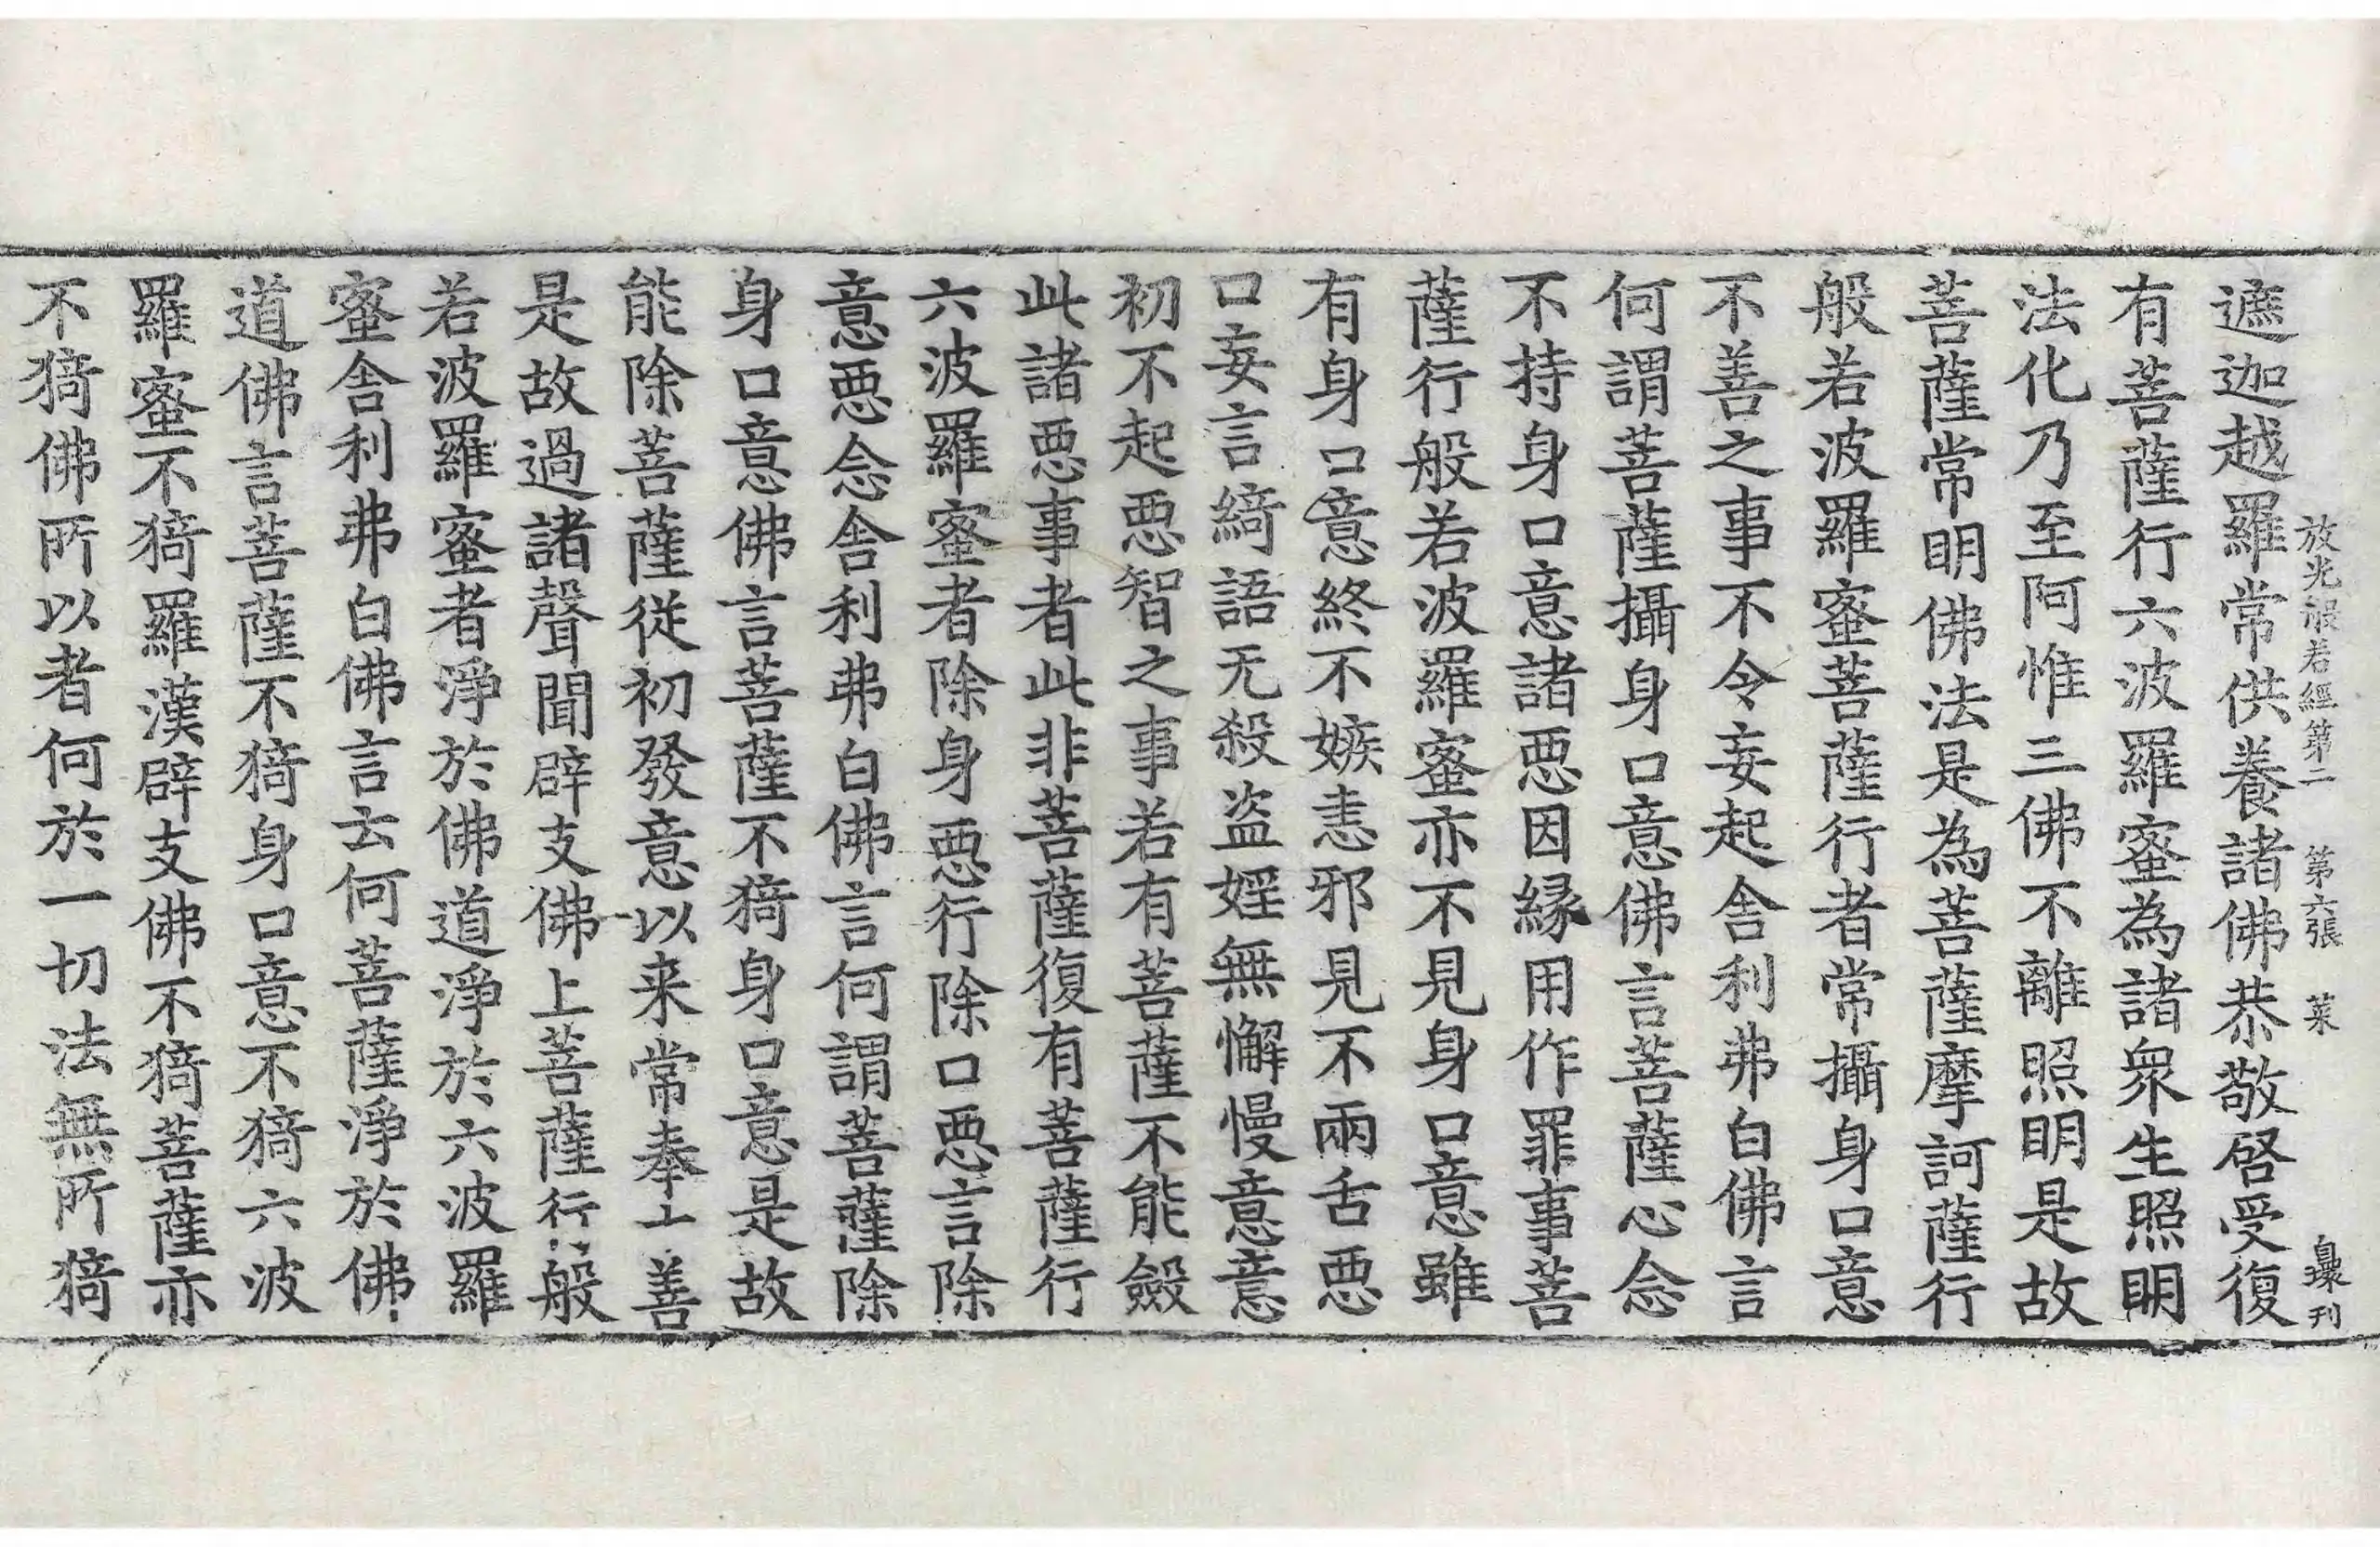 放光般若經第二 第六張 菜 自環刊
遮迦越羅常供養諸佛恭敬啓受復
有菩薩行六波羅蜜為諸衆生照明
法化乃至阿惟三佛不離照明是故
菩薩常明佛法是為菩薩摩訶薩行
般若波羅蜜菩薩行者常攝身口意
不善之事不令妄起舍利弗白佛言
何謂菩薩攝身口意佛言菩薩心念
不持身口意諸惡因緣用作罪事菩
薩行般若波羅蜜亦不見身口意雖
有身口意終不嫉恚邪見不兩舌惡
口妄言綺語无殺盜婬無懈慢意意
初不起惡智之事若有菩薩不能斂
此諸惡事者此非菩薩復有菩薩行
六波羅蜜者除身惡行除口惡言除
意惡念舍利弗白佛言何謂菩薩除
身口意佛言菩薩不猗身口意是故
能除菩薩從初發意以来常奉十善
是故過諸聲聞辟支佛上菩薩行般
若波羅蜜者淨於佛道淨於六波羅
蜜舍利弗白佛言云何菩薩淨於佛
道佛言菩薩不猗身口意不猗六波
羅蜜不猗羅漢辟支佛不猗菩薩亦
不猗佛所以者何於一切法無所猗